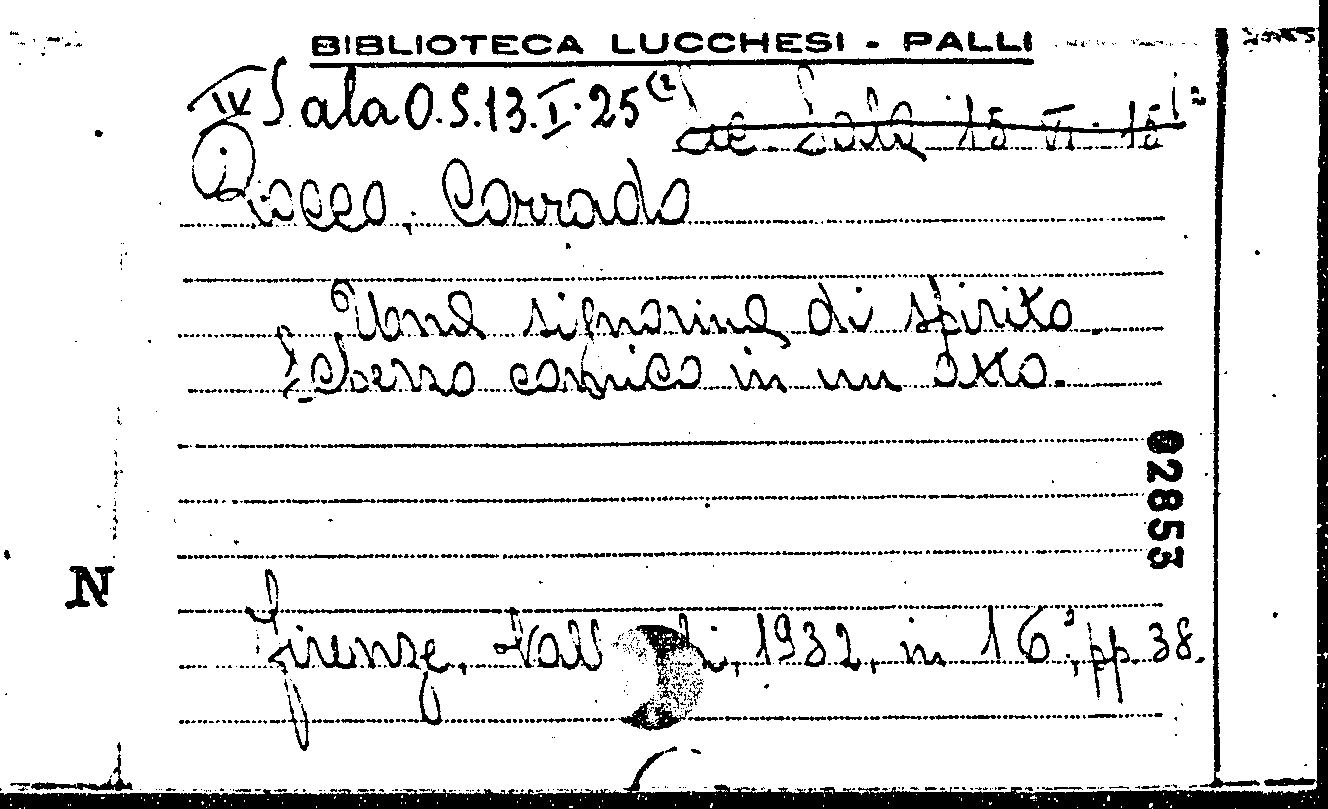 BIBLIOTECA LUCCHESI - PALLI
IV Sala O.S.13.I.25(2 Sala 15 VI 15
Rocco, Corrado
Una signorina di spirito.
Scherzo comico in un atto.
02853
N
Firenze, Vall di, 1932, in 16°, pp. 38.